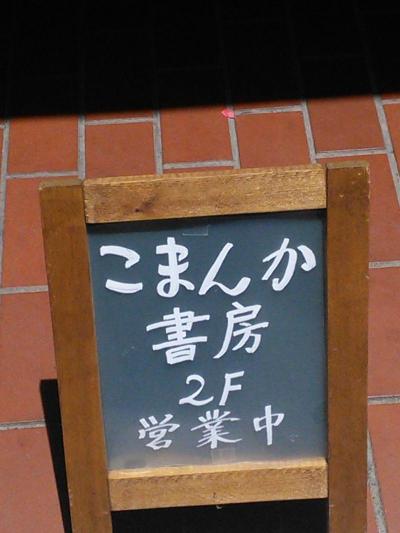 こまんか
書房
2F
営業中